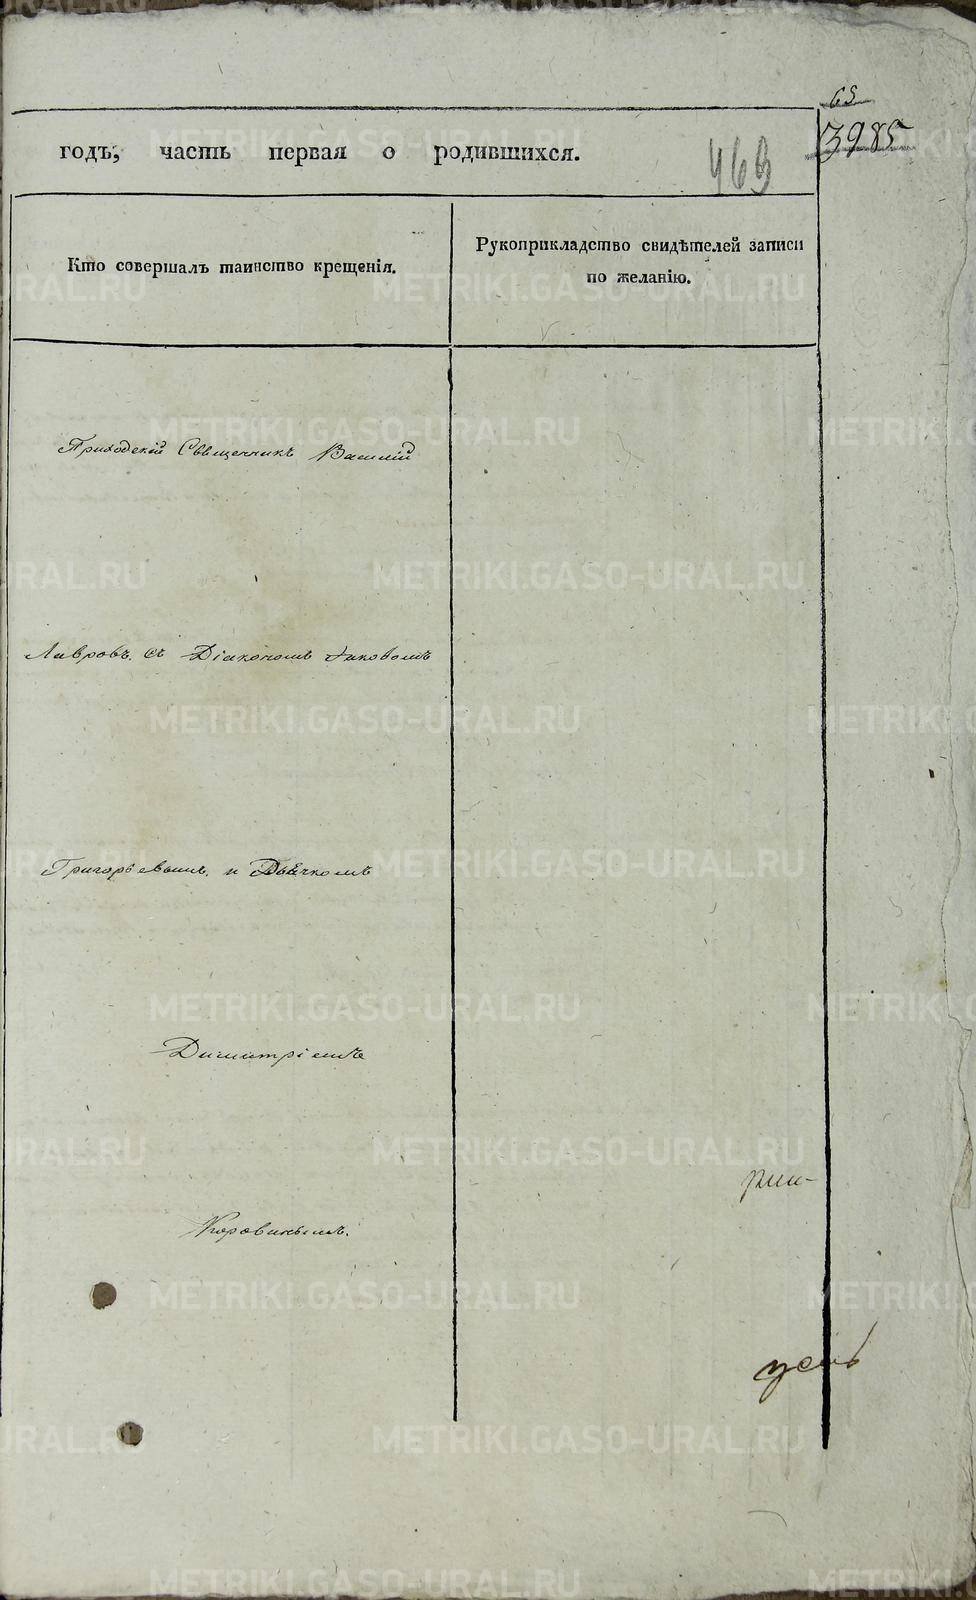 65
3985
годъ, часть первая о родившихся.
463
Кто совершалъ таинство крещенія.
Рукоприкладство свидѣтелей записи
по желанію.
Приходскій Священникъ Василій
Лавровъ. съ Діакономъ Іаковомъ
Григорьевымъ. и Дьячкомъ
Димитріемъ
Коровинымъ.
METRIKI.GASO-URAL.RU